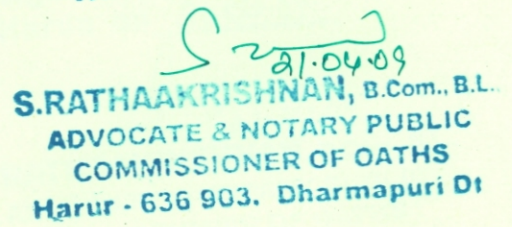 21.04.09
S.RATHAAKRISHNAN, B.Com., B.L.
ADVOCATE & NOTARY PUBLIC
COMMISSIONER OF OATHS
Harur - 636 903. Dharmapuri Dt